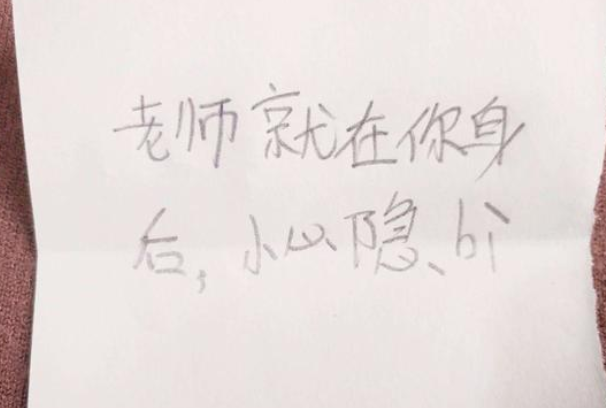 老师就在你身
后，小心隐、